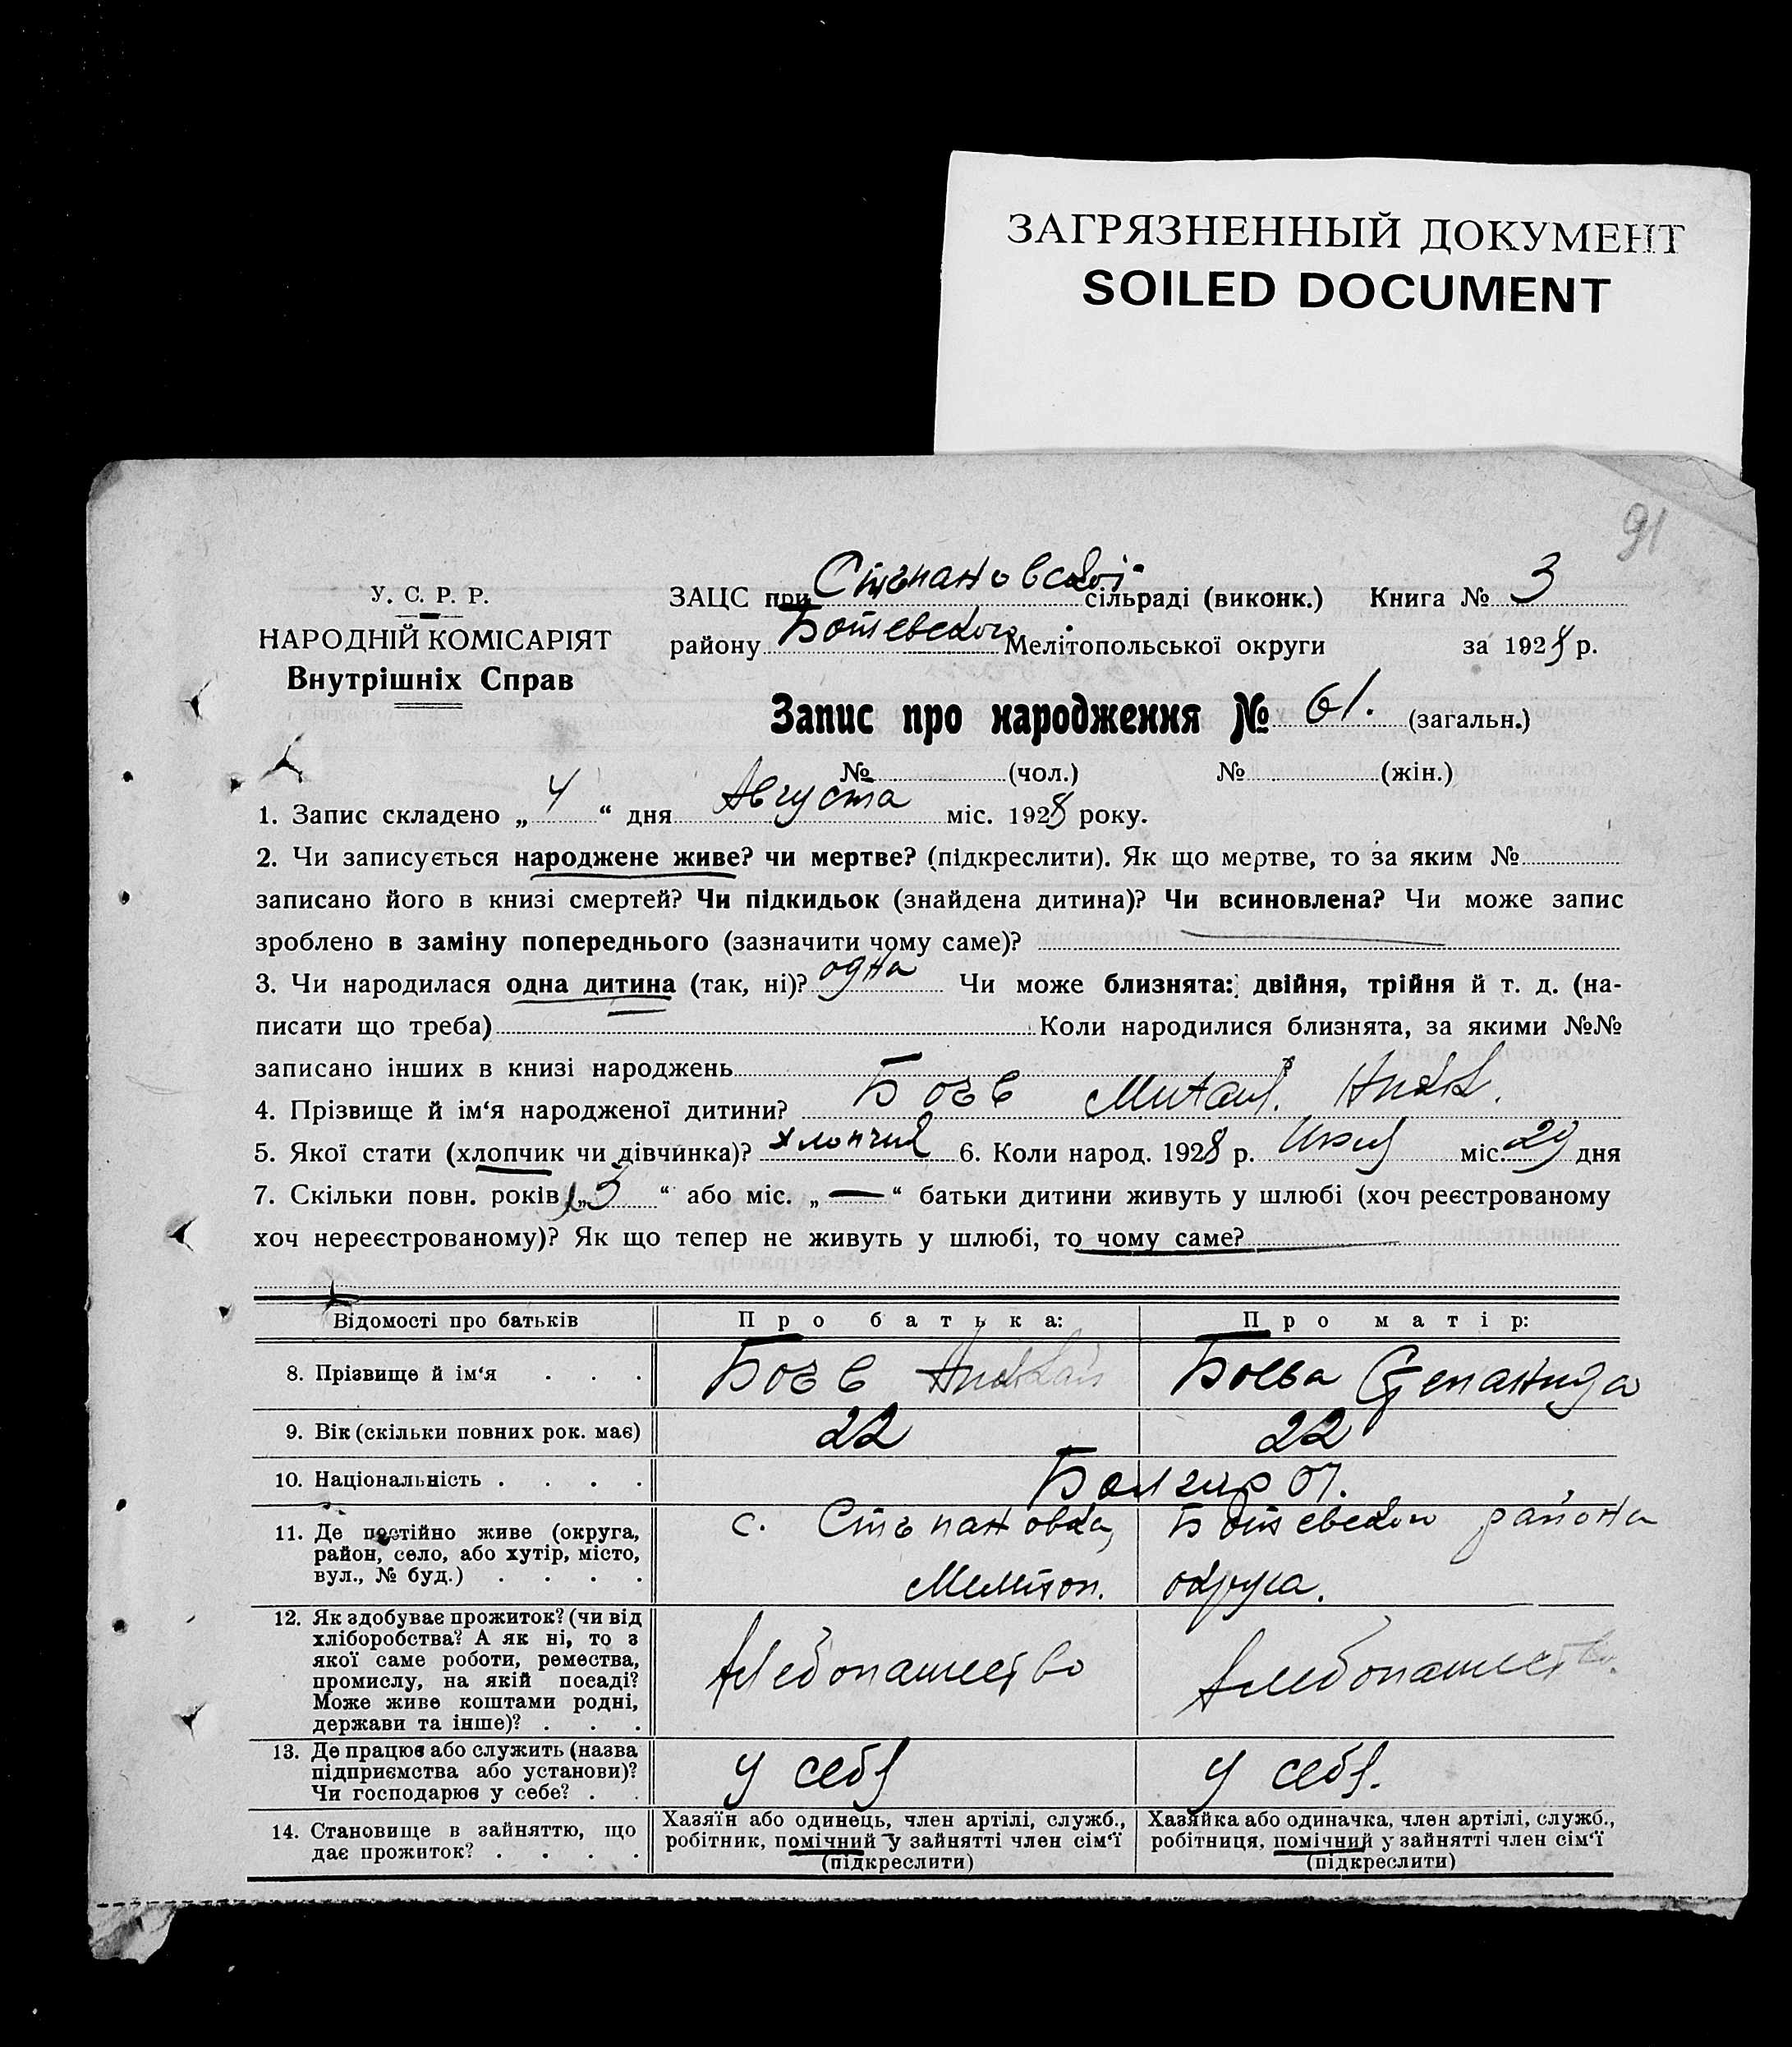 ЗАГРЯЗНЕННЫЙ ДОКУМЕНТ
SOILED DOCUMENT
91
У. С. Р. Р.
НАРОДНІЙ КОМІСАРІЯТ
Внутрішніх Справ
ЗАЦС при Стъпановской сільраді (виконк.) Книга № 3
району Ботевского Мелітопольської округи за 1928 р.
Запис про народження № 61. (загальн.)
№ (чол.) № (жін.)
1. Запис складено „ 4 “ дня Августа міс. 1928 року.
2. Чи записується народжене живе? чи мертве? (підкреслити). Як що мертве, то за яким №
записано його в книзі смертей? Чи підкидьок (знайдена дитина)? Чи всиновлена? Чи може запис
зроблено в заміну попереднього (зазначити чому саме)?
3. Чи народилася одна дитина (так, ні)? одна Чи може близнята: двійня, трійня й т. д. (на-
писати що треба) Коли народилися близнята, за якими №№
записано інших в книзі народжень ?
4. Прізвище й ім‘я народженої дитини? Боев
5. Якої статі (хлопчик чи дівчинка)? хлопчик 6. Коли народ. 1928 р. міс. 29 дня
7. Скільки повн. років „ 3 “ або міс. „ — “ батьки дитини живуть у шлюбі (хоч реєстрованому
хоч нереєстрованому)? Як що тепер не живуть у шлюбі, то чому саме?
Відомості про батьків Про батька: Про матір:
8. Прізвище й ім‘я . . . Боев Боева Степанида
9. Вік (скільки повних рок. має) 22 22
10. Національність . . . . Болгары.
11. Де постійно живе (округа,
район, село, або хутір, місто,
вул., № буд.) . . . .
с. Стъпановка, Ботевского района
Мелитоп. округа.
12. Як здобуває прожиток? (чи від
хліборобства? А як ні, то з
якої саме роботи, ремества,
промислу, на якій посаді?
Може живе коштами родні,
держави та інше)? . . .
Хлебопашество Хлебопашество.
13. Де працює або служить (назва
підприємства або установи)?
Чи господарює у себе? . .
У себя У себя.
14. Становище в зайняттю, що
дає прожиток? . . . .
Хазяїн або одинець, член артілі, служб.,
робітник, помічний у зайнятті член сім‘ї
(підкреслити)
Хазяйка або одиначка, член артілі, служб.,
робітниця, помічний у зайнятті член сім‘ї
(підкреслити)